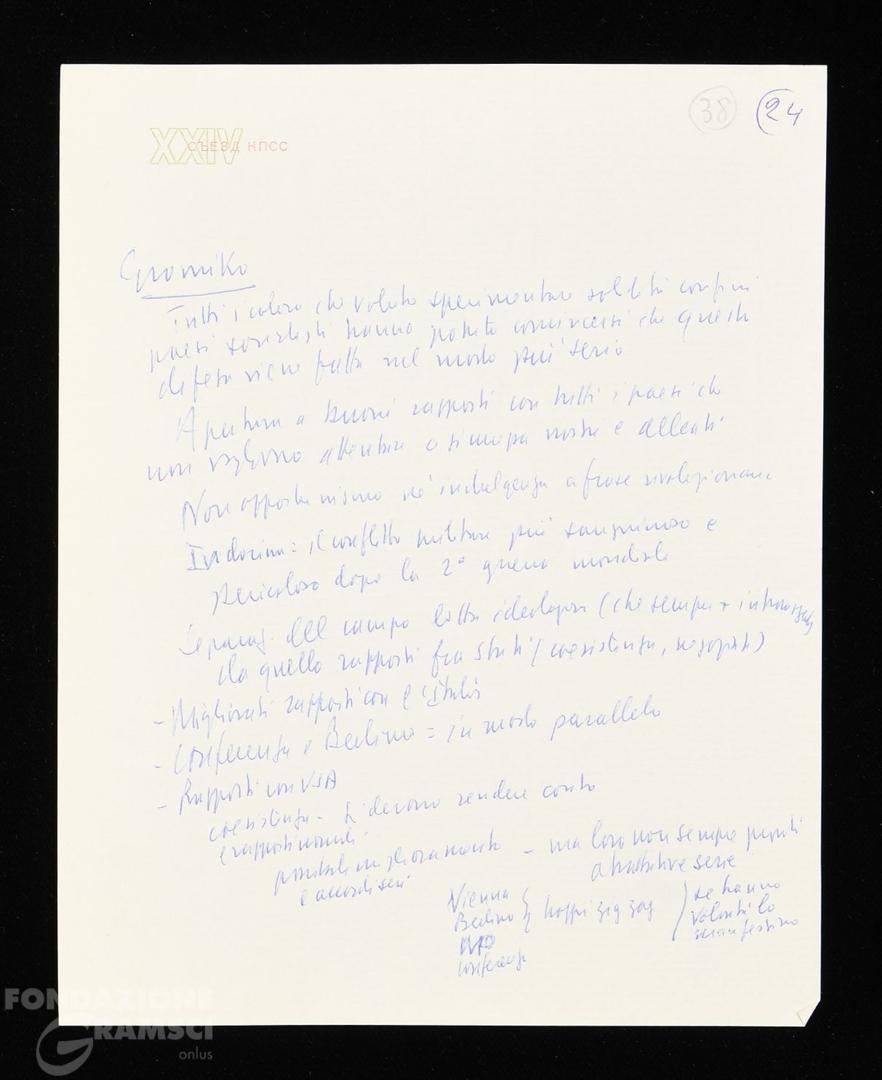 38 24
XXIV
СЪЕЗД КПСС
Gromiko
Tutti i coloro che voluto sperimentare solidità confini
paesi socialisti hanno potuto convincersi che questa
difesa viene fatta nel modo più serio
Apertura a buoni rapporti con tutti i paesi che
non vogliono attentare a sicurezza nostra e alleati
Non opportunismo né indulgenza a frase rivoluzionaria
Indocina = il conflitto militare più sanguinoso e
pericoloso dopo la 2ª guerra mondiale
Separaz. del campo lotta ideologica (che sempre +
da quello rapporti fra Stati (coesistenza, negoziati)
- Migliorati rapporti con l'Italia
- Conferenza e Berlino = in modo parallelo
- Rapporti con USA
coesistenza - Si devono rendere conto
e rapporti normali
possibile miglioramento - ma loro non sempre pronti
e accordi seri a trattative serie
Vienna
Berlino troppi zig zag se hanno
MO volontà lo
conferenza manifestino
FONDAZIONE
GRAMSCI
onlus